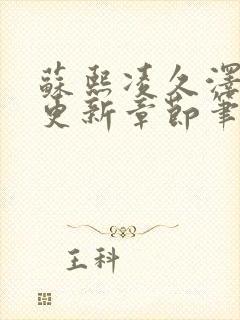 蘇熙凌久澤
更新章節筆
王科